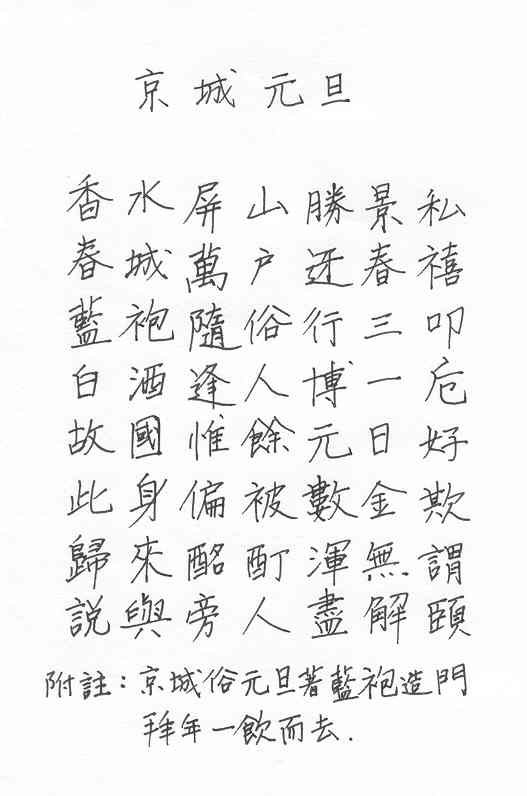 京城元旦
香水屏山勝景私
春城萬户迓春禧
藍袍隨俗行三叩
白酒逢人博一卮
故國惟餘元日好
此身偏被數金欺
歸來酩酊渾無謂
説與旁人盡解頤
附註：京城俗元旦著藍袍造門
拜年一飲而去.